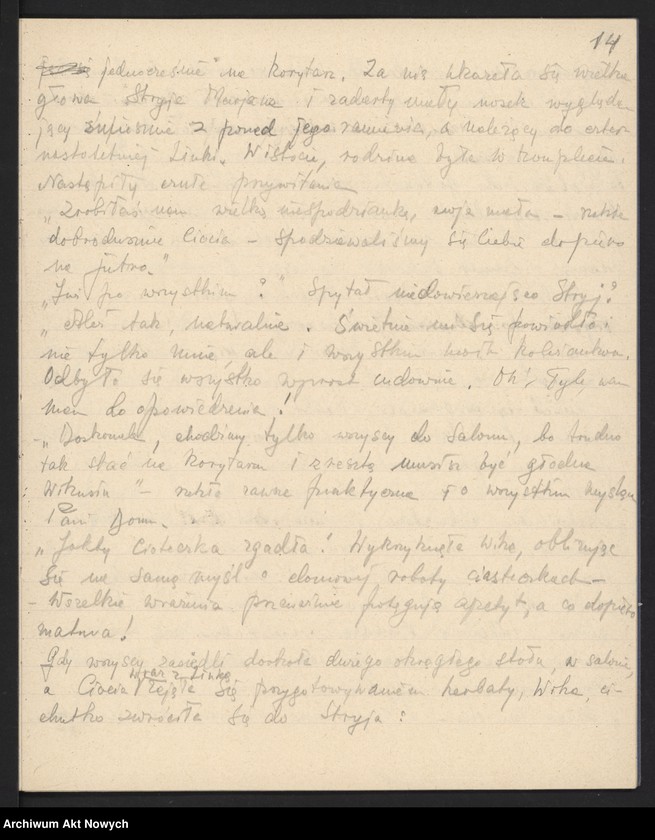 14
jednocześnie na korytarz. Za nią ukazała się wielka
głowa Stryja i zadarty mały nosek wygląda-
jący śmiesznie z ponad jego ramienia, a należący do czter-
nastoletniej Linki. W istocie, rodzina była w komplecie.
Nastąpiły czułe przywitania
„Zrobiłaś nam wielką niespodziankę, moja mała – rzekła
dobrodusznie Ciocia – spodziewaliśmy się Ciebie dopiero
na jutro."
„Już po wszystkim?" Spytał niedowierzająco Stryj?
„Ależ tak, naturalnie. Świetnie mi się powiodło i
nie tylko mnie, ale i wszystkim moim koleżankom.
Odbyło się wszystko wprost cudownie. Oh! Tyle wam
mam do opowiedzenia!
„Doskonale, chodźmy tylko wszyscy do salonu, bo trudno
tak stać na korytarzu i zresztą musisz być głodna
Wikusiu" – rzekła zawsze praktyczna i o wszystkim myśląca
Pani Domu.
„Jakby Cioteczka zgadła! Wykrzyknęła Wika, oblizując
się na samą myśl o domowej roboty ciasteczkach –
– Wszelkie wrażenia potęgują apetyt, a co dopiero
matura!
Gdy wszyscy zasiedli dookoła dużego okrągłego stołu, w salonie,
wraz z Linką
a Ciocia zajęła się przygotowywaniem herbaty, Wika, ci-
chutko zwróciła się do Stryja:
Archiwum Akt Nowych